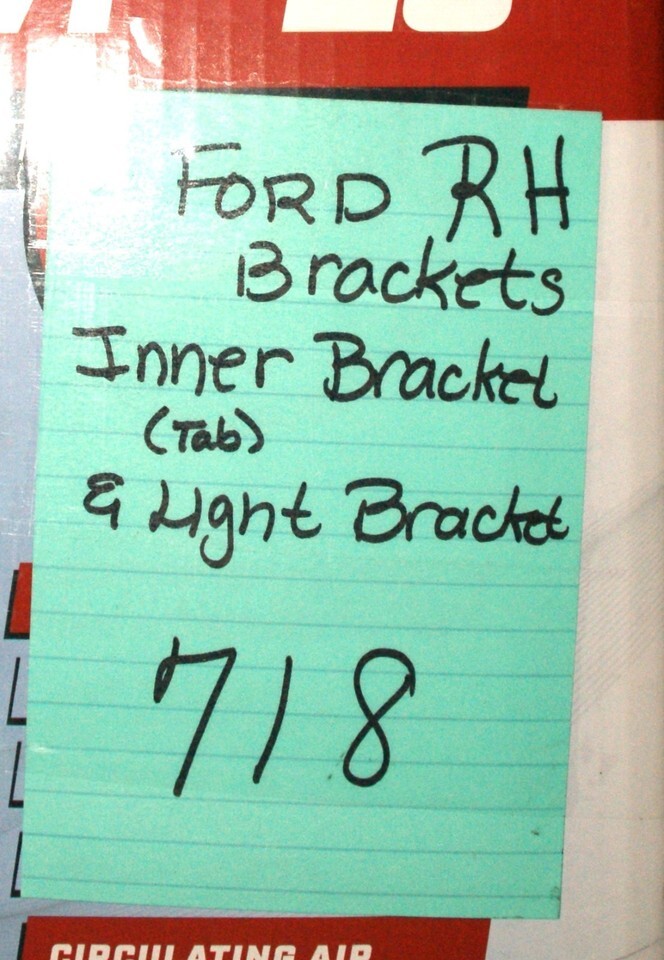 FORD RH
Brackets
Inner Bracket
(Tab)
& Light Bracket
718
CIRCULATING AIR